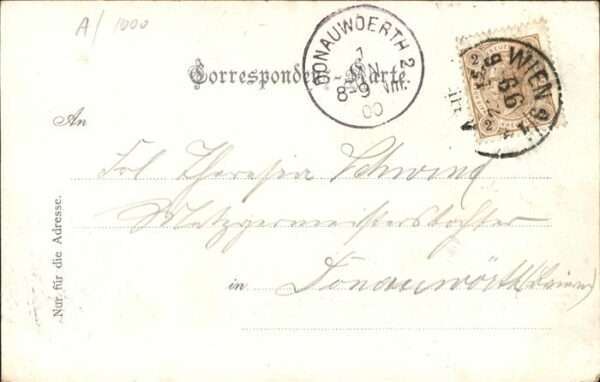 A/1000
Correspondenz-Karte.
DONAUWOERTH 2
1
JAN
8-9 Vm.
00
WIEN
99
An
Frl Theresia Schwind
Metzgermeisterstochter
in Donauwörth (Baiern)
Nur für die Adresse.